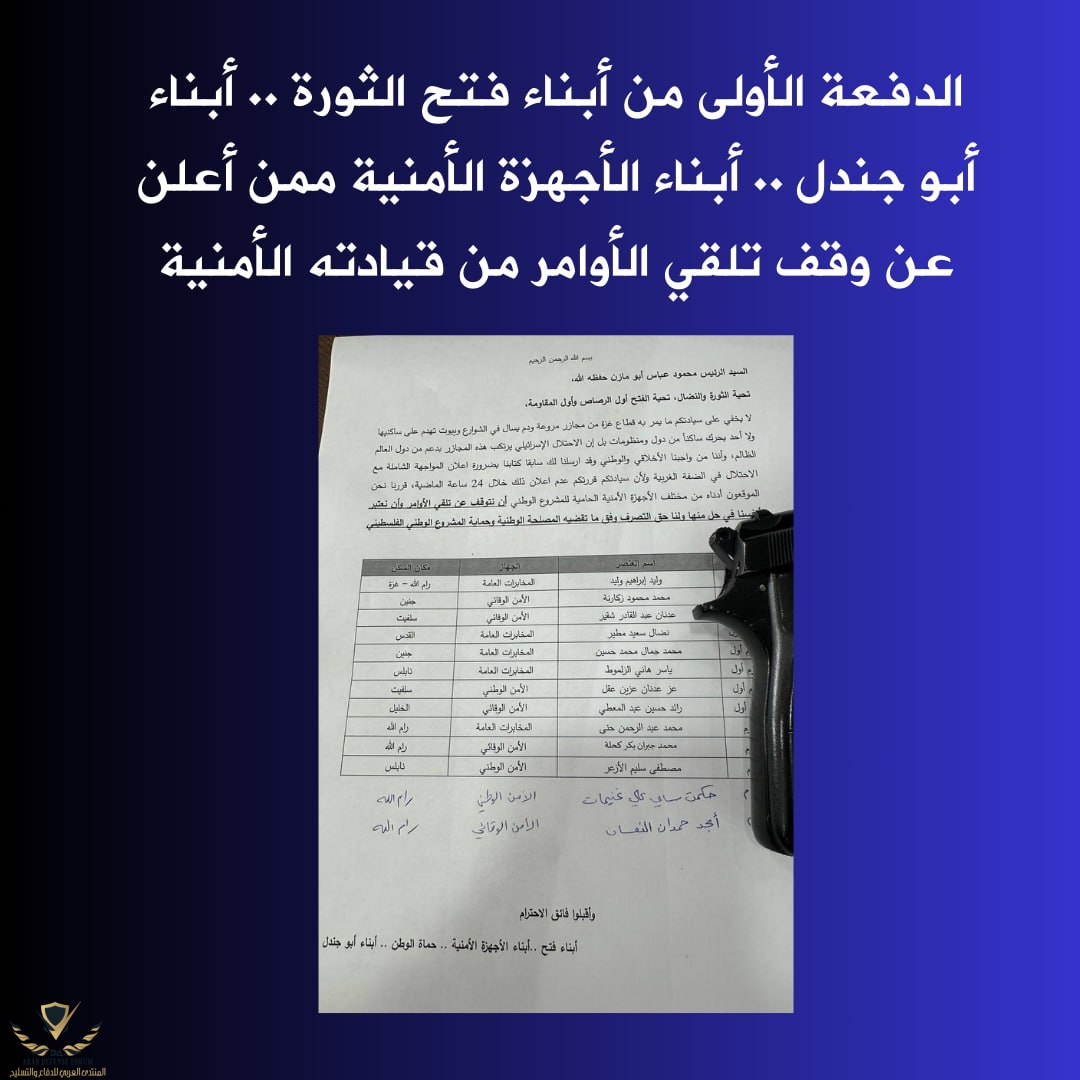 الدفعة الأولى من أبناء فتح الثورة .. أبناء
أبو جندل .. أبناء الأجهزة الأمنية ممن أعلن
عن وقف تلقي الأوامر من قيادته الأمنية
بسم الله الرحمن الرحيم
السيد الرئيس محمود عباس أبو مازن حفظه الله،
تحية الثورة والنضال، تحية الفتح أول الرصاص وأول المقاومة،
لا يخفي على سيادتكم ما يمر به قطاع غزة من مجازر مروعة ودم يسال في الشوارع وبيوت تهدم على ساكنيها
ولا أحد يحرك ساكناً من دول ومنظومات بل إن الاحتلال الإسرائيلي يرتكب هذه المجازر بدعم من دول العالم
الظالم، وأننا من واجبنا الأخلاقي والوطني وقد ارسلنا لك سابقا كتابنا بضرورة اعلان المواجهة الشاملة مع
الاحتلال في الضفة الغربية ولأن سيادتكم قررتكم عدم اعلان ذلك خلال 24 ساعة الماضية، قررنا نحن
الموقعون أدناه من مختلف الأجهزة الأمنية الحامية للمشروع الوطني أن نتوقف عن تلقي الأوامر وأن نعتبر
أنفسنا في حل منها ولنا حق التصرف وفق ما تقضيه المصلحة الوطنية وحماية المشروع الوطني الفلسطيني
اسم العنصر الجهاز مكان السكن
وليد إبراهيم وليد المخابرات العامة رام الله – غزة
محمد محمود زكارنة الأمن الوقائي جنين
عدنان عبد القادر شقير الأمن الوقائي سلفيت
نضال سعيد مطير المخابرات العامة القدس
أول محمد جمال محمد حسين المخابرات العامة جنين
أول ياسر هاني الزلموط المخابرات العامة نابلس
أول عز عدنان عزين عقل الأمن الوطني سلفيت
أول رائد حسين عبد المعطي الأمن الوقائي الخليل
محمد عبد الرحمن حتى المخابرات العامة رام الله
محمد جبران بكر كحلة الأمن الوقائي رام الله
مصطفى سليم الأزعر الأمن الوطني نابلس
حكمت سامي غنيمات الأمن الوطني رام الله
أمجد حمدان الأمن الوقائي رام الله
وأقبلوا فائق الاحترام
أبناء فتح ..أبناء الأجهزة الأمنية .. حماة الوطن .. أبناء أبو جندل
ARAB DEFENSE FORUM
المنتدى العربي للدفاع والتسليح